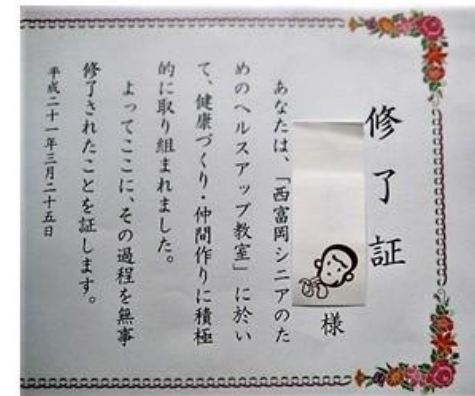 修了証
様
あなたは、「西富岡シニアのた
めのヘルスアップ教室」に於い
て、健康づくり・仲間作りに積極
的に取り組まれました。
よってここに、その過程を無事
修了されたことを証します。
平成二十一年三月二十五日